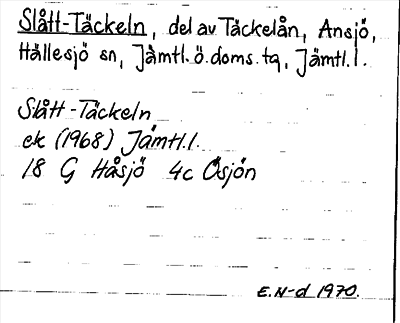 Slått-Täckeln, del av Täckelån, Ansjö,
Hällesjö sn, Jämtl. ö. doms. tg, Jämtl. l.
Slått-Täckeln
ek (1968) Jämtl. l.
18 G Håsjö 4c Ösjön
E. N-d 1970.